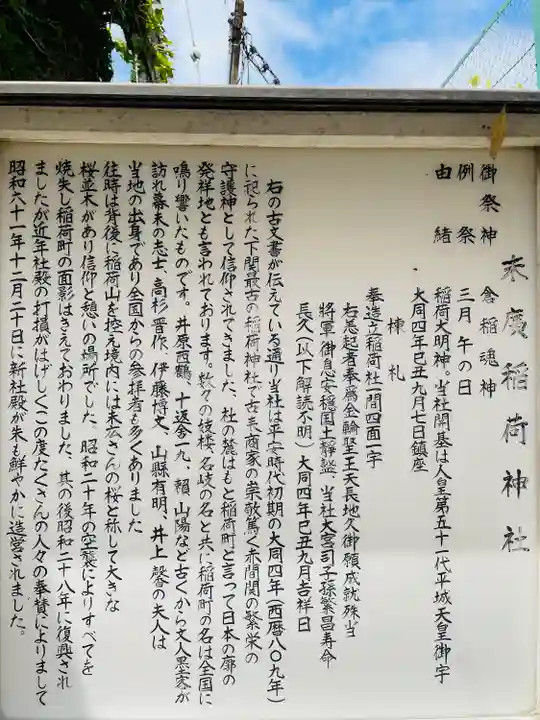 末廣稲荷神社
御祭神　倉稲魂神
例祭　三月　午の日
由緒　稲荷大明神。当社開基は人皇第五十一代平城天皇御宇
大同四年己丑九月七日鎮座
棟札
奉造立稲荷社一間四面一宇
右志起者奉爲金輪聖王天長地久御願成就殊当
将軍御息安穏国土靜謐、当社大宮司子孫繁昌寿命
長久（以下解読不明）大同四年己丑九月吉祥日
右の古文書が伝えている通り当社は平安時代初期の大同四年（西暦八〇九年）
に祀られた下関最古の稲荷神社で古来商家の崇敬篤く赤間関の繁栄の
守護神として信仰されてきました、社の麓はもと稲荷町と言って日本の廓の
発祥地とも言われております。数々の妓楼、名妓の名と共に稲荷町の名は全国に
鳴り響いたものです。井原西鶴、十返舎一九、頼山陽など古くから文人墨客が
訪れ幕末の志士、高杉晋作、伊藤博文、山縣有明、井上馨の夫人は
当地の出身であり全国からの参拝者も多くありました
往時は背後に稲荷山を控え境内には末広さんの桜と称して大きな
桜並木があり信仰と憩いの場所でした、昭和二十年の空襲によりすべてを
焼失し稲荷町の面影はきえておわりました、其の後昭和二十八年に復興され
ましたが近年社殿の打損がはげしくこの度たくさんの人々の奉賛によりまして
昭和六十一年十二月二十日に新社殿が朱も鮮やかに造営されました。